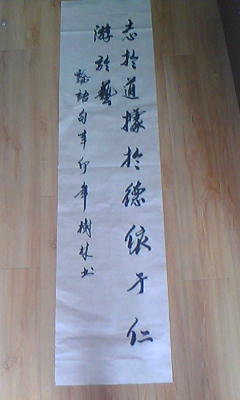 志於道據於德依于仁
游於藝
論語句辛卯年樹林书